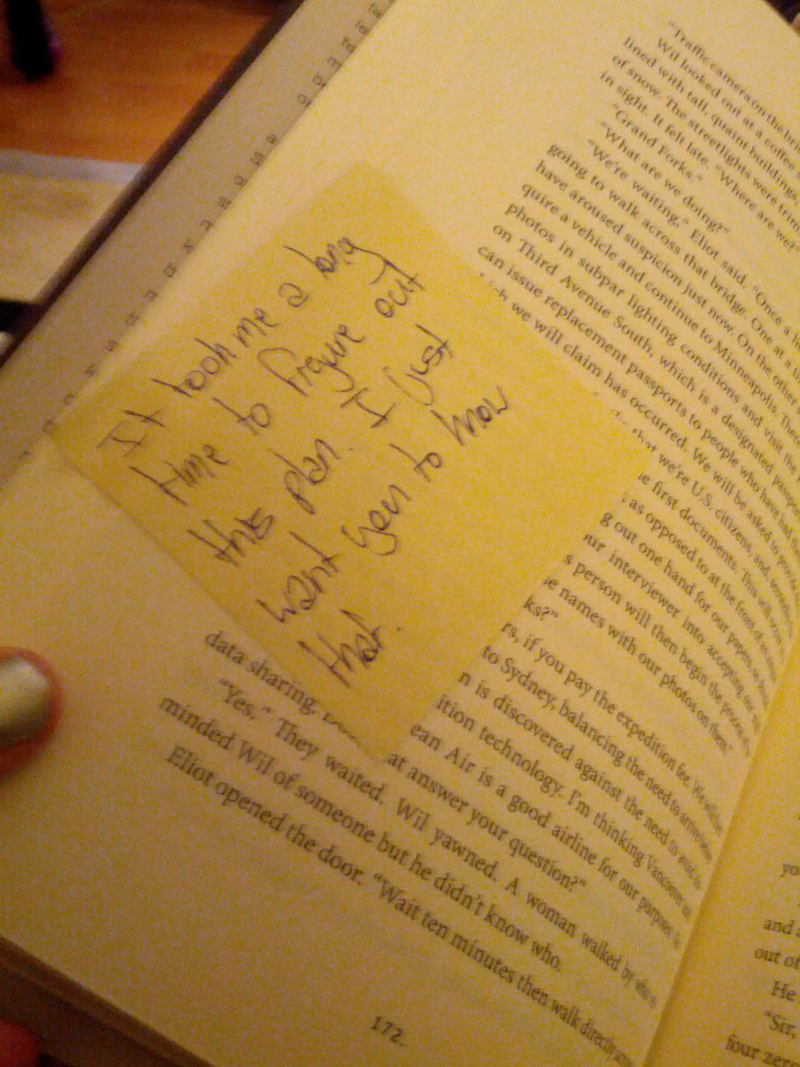 "Traffic camera on the
Wil looked out at a coffee
lined with tall, quaint buildings,
of snow. The streetlights were
in sight. It felt late. "Where are we?"
"Grand Forks."
"What are we doing?"
"We're waiting," Eliot said. "Once a
going to walk across that bridge. One at a
have aroused suspicion just now. On the other
quire a vehicle and continue to Minneapolis.
photos in subpar lighting conditions and visit the
on Third Avenue South, which is a designated
can issue replacement passports to people who have had
we will claim has occurred. We will be asked to
that we're U.S. citizens, and,
first documents. This will
as opposed to at the front of
out one hand for our papers,
our interviewer into accepting our
person will then begin the process of
names with our photos on them."
if you pay the expedition fee. We
to Sydney, balancing the need to
is discovered against the need to avoid
technology. I'm thinking Vancouver
Air is a good airline for our purposes.
data sharing. at answer your question?"
"Yes." They waited. Wil yawned. A woman walked by who
minded Wil of someone but he didn't know who.
Eliot opened the door. "Wait ten minutes then walk directly
172
It took me a long
time to figure out
this plan. I just
want you to know
that.
and
out of
He
"Sir,
four